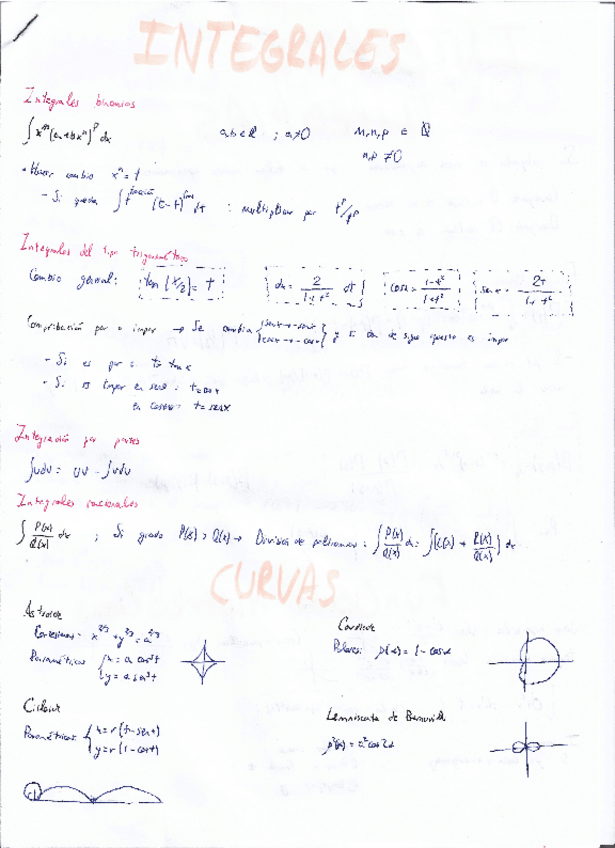 INTEGRALES
Integrales binomias
∫ x^m (a+bx^n)^p dx    a,b ∈ ℝ ; a≠0    m,n,p ∈ ℚ
n,p ≠ 0
• Hacer cambio x^n = t
- Si queda ∫ t (t-t) dt : multiplicar por t^p/t^p
Integrales del tipo trigonométrico
Cambio general: tan(x/2) = t    dx = 2/(1+t²) dt    cos x = (1-t²)/(1+t²)    sen x = 2t/(1+t²)
Comprobación par o impar → Se cambia { sen x → -sen x   cos x → -cos x } y si de signo opuesto es impar
- Si es par : t = tan x
- Si es impar en seno : t = cos x
en coseno : t = sen x
Integración por partes
∫ u dv = uv - ∫ v du
Integrales racionales
∫ P(x)/Q(x) dx ; Si grado P(x) > Q(x) → División de polinomios : ∫ P(x)/Q(x) dx = ∫ [C(x) + R(x)/Q(x)] dx
CURVAS
Astroide
Cartesianas - x^2/3 + y^2/3 = a^2/3
Paramétricas { x = a cos³t
y = a sen³t
Cardioide
Polares: ρ(α) = 1 - cos α
Cicloide
Paramétricas: { x = r (t - sen t)
y = r (1 - cos t)
Lemniscata de Bernoulli
ρ²(α) = a² cos 2α